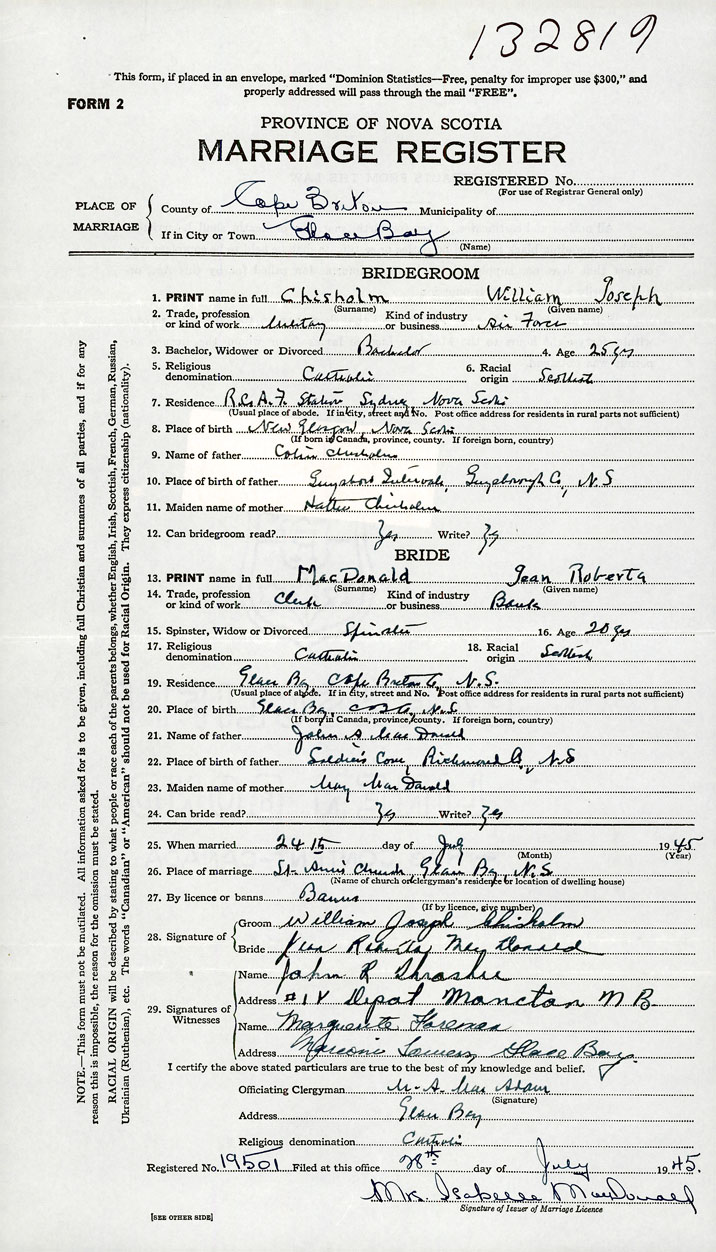 132819
This form, if placed in an envelope, marked "Dominion Statistics—Free, penalty for improper use $300," and
properly addressed will pass through the mail "FREE".
FORM 2
PROVINCE OF NOVA SCOTIA
MARRIAGE REGISTER
REGISTERED No.
(For use of Registrar General only)
PLACE OF MARRIAGE
County of Cape Breton Municipality of
If in City or Town Glace Bay
(Name)
BRIDEGROOM
1. PRINT name in full Chisholm William Joseph
(Surname) (Given name)
2. Trade, profession or kind of work Military Kind of industry or business Air Force
3. Bachelor, Widower or Divorced Bachelor 4. Age 25 yrs
5. Religious denomination Catholic 6. Racial origin Scottish
7. Residence R.C.A.F. Station Sydney, Nova Scotia
(Usual place of abode. If in city, street and No. Post office address for residents in rural parts not sufficient)
8. Place of birth New Glasgow, Nova Scotia
(If born in Canada, province, county. If foreign born, country)
9. Name of father Colin Chisholm
10. Place of birth of father Guysboro Intervale, Guysborough Co, N.S
11. Maiden name of mother Hattie Chisholm
12. Can bridegroom read? Yes Write? Yes
BRIDE
13. PRINT name in full MacDonald Jean Roberta
(Surname) (Given name)
14. Trade, profession or kind of work Clerk Kind of industry or business Bank
15. Spinster, Widow or Divorced Spinster 16. Age 20 yrs
17. Religious denomination Catholic 18. Racial origin Scottish
19. Residence Glace Bay, Cape Breton Co, N.S.
(Usual place of abode. If in city, street and No. Post office address for residents in rural parts not sufficient)
20. Place of birth Glace Bay, N.S
(If born in Canada, province, county. If foreign born, country)
21. Name of father John A MacDonald
22. Place of birth of father Soldiers Cove, Richmond Co, N.S
23. Maiden name of mother May MacDonald
24. Can bride read? Yes Write? Yes
25. When married 24th day of July 1945
(Month) (Year)
26. Place of marriage St. Ann's Church, Glace Bay, N.S
(Name of church or clergyman's residence or location of dwelling house)
27. By licence or banns Banns
(If by licence, give number)
28. Signature of
Groom William Joseph Chisholm
Bride Jean Roberta MacDonald
29. Signatures of Witnesses
Name John R Thrasher
Address Depot Moncton N B
Name Marguerite Foreman
Address Marconi Towers, Glace Bay.
I certify the above stated particulars are true to the best of my knowledge and belief.
Officiating Clergyman M. A. MacAdam
(Signature)
Address Glace Bay
Religious denomination Catholic
Registered No. 19501 Filed at this office 28th day of July 1945.
Mrs. Isabelle MacDonald
Signature of Issuer of Marriage Licence
[SEE OTHER SIDE]
NOTE.—This form must not be mutilated. All information asked for is to be given, including full Christian and surnames of all parties, and if for any
reason this is impossible, the reason for the omission must be stated.
RACIAL ORIGIN will be described by stating to what people or race each of the parents belongs, whether English, Irish, Scottish, French, German, Russian,
Ukrainian (Ruthenian), etc. The words "Canadian" or "American" should not be used for Racial Origin. They express citizenship (nationality).